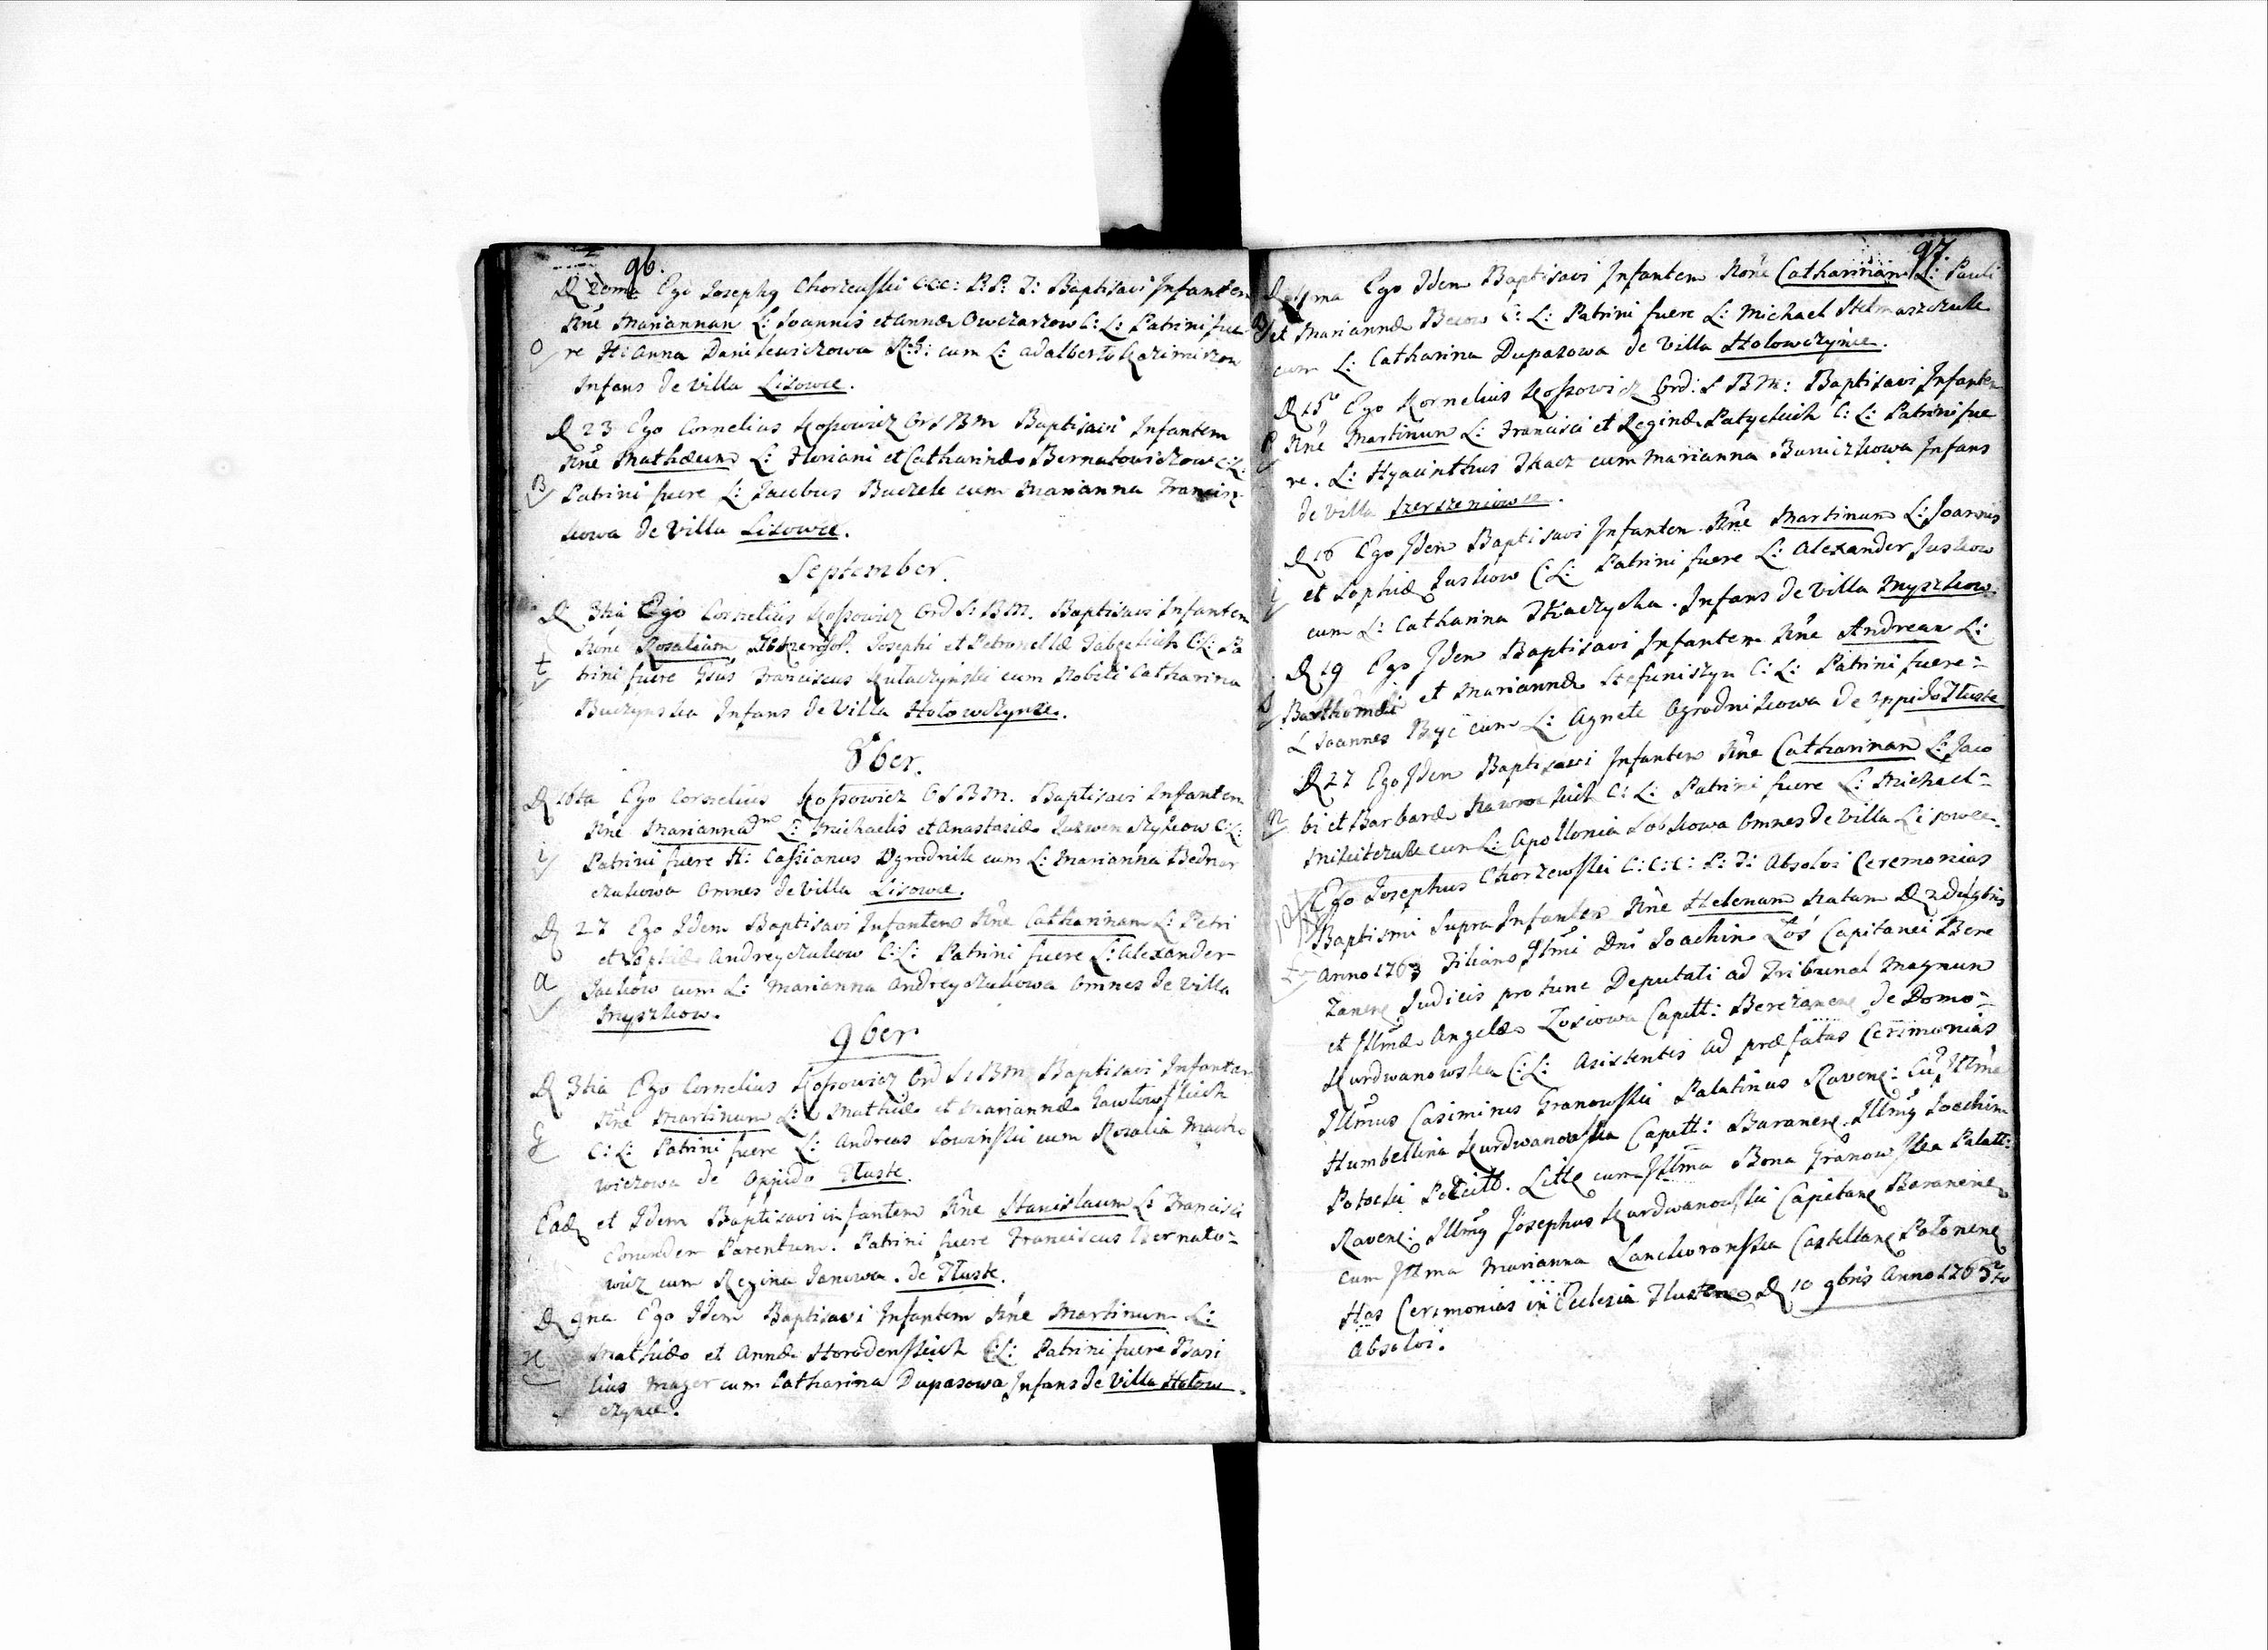 96.
D 20ma Ego Josephq Chorzewski CCC: P.P. T: Baptisavi Infantem
Nne Mariannam L: Joannis et Annæ Owczarzow C: L: Patrini fue
O re H: Anna Danilewiczowa cum L: Adalberto Kazimirzow
Infans de Villa Lisowce.
D 23 Ego Cornelius Kossowicz Or S B M Baptisavi Infantem
Nne Mathæum L: Floriani et Catharinæ Bernatowiczow C:L:
B Patrini fuere L: Jacobus Buczek cum Marianna Francisz
kowa de Villa Lisowce.
September.
D 3tia Ego Cornelius Kossowicz Ord S: B M. Baptisavi Infantem
Nne Rosaliam Josephi et Petronellæ C:L: Pa
trini fuere Franciscus Kulaczynski cum Nobili Catharina
Buczynska Infans de Villa Hołowczynce.
8ber.
D 16ta Ego Cornelius Kossowicz O S B M. Baptisavi Infantem
Nne Mariannam L: Michaelis et Anastasiæ C:L:
i Patrini fuere H: Cassianus Ogrodnik cum L: Marianna Bednar
czukowa Omnes de Villa Lisowce.
D 27 Ego Idem Baptisavi Infantem Nne Catharinam L: Petri
et Sophiæ Andreyczukow C:L: Patrini fuere L: Alexander
A Jaśkow cum L: Marianna Andreyczukowa Omnes de Villa
Myszkow.
9ber
D 3tia Ego Cornelius Kossowicz Ord S: B M Baptisavi Infantem
Nne Martinum L: Mathiæ et Mariannæ Gawłowskich
G C: L: Patrini fuere L: Andreas Sowinski cum Rozalia Mać
wiczowa de Oppido Tłuste.
Eadē et Idem Baptisavi infantem Nne Stanislaum L: Francisci
Eorundem Parentum. Patrini fuere Franciscus Bernato=
wicz cum Regina Janowa. de Tłuste.
D 9na Ego Idem Baptisavi Infantem Nne Martinum L:
H Mathiæ et Annæ Horodenskich C:L: Patrini fuere Basi
lius Mazer cum Catharina Duparowa Infans de Villa Hołow
czynce.
97.
D 11ma Ego Idem Baptisavi Infantem Nne Catharinam L: Pauli
B et Mariannæ Becow C: L: Patrini fuere L: Michael Stelmaszczuk
cum L: Catharina Duparowa de Villa Hołowczynce.
D 15o Ego Kornelius Kossowicz Ord: S B M: Baptisavi Infantem
P Nne Martinum L: Francisci et Reginæ Patyckich C: L: Patrini fue
re. L: Hyacinthus Tkacz cum Marianna Buniczkowa Infans
de Villa Szerszeniowce.
D 16 Ego Idem Baptisavi Infantem Nne Martinum L: Joannis
j et Sophiæ Juskow C:L: Patrini fuere L: Alexander Juskow
cum L: Catharina Tkaczycha. Infans de Villa Myszkow.
D 19 Ego Idem Baptisavi Infantem Nne Andream L:
S Barthomæi et Mariannæ Stefuniszyn C: L: Patrini fuere=
L Joannes Być cum L: Agnete Ogrodnikowa de Oppido Tłuste
D 27 Ego Idem Baptisavi Infantem Nne Catharinam L: Jaco
N bi et Barbaræ C: L: Patrini fuere L: Michael=
Mikitczuk cum L: Apollonia Sobkowa Omnes de Villa Lisowce.
Ego Josephus Chorzewski C: C: C: P: T: Absolvi Ceremonias
Baptismi Supra Infantem Nne Helenam Natam D 2da 9bris
Anno 1763 Filiam Illmi Dni Joachim Łoś Capitanei Bere
zanene Judicis pro tunc Deputati ad Tribunal Magnum
et Illmæ Angelæ Łosiowa Capitt: Berezanene de Domo=
Kurdwanowska C: L: Asistentis ad præfatas Cerimonias
Illmus Casimirus Granowski Palatinus Ravene: Cū Illma
Humbellina Kurdwanowska Capitt: Baranene. Illmq Joachim
Potocki Litte cum Illma Bona Granowska Palatt:
Ravene: Illmq Josephus Kurdwanowski Capitane Baranene
cum Illma Marianna Lanckoronska Castellane Połonene
Has Ceremonias in Ecclesia Tlustene D 10 9bris Anno 1765to
Absolvi.